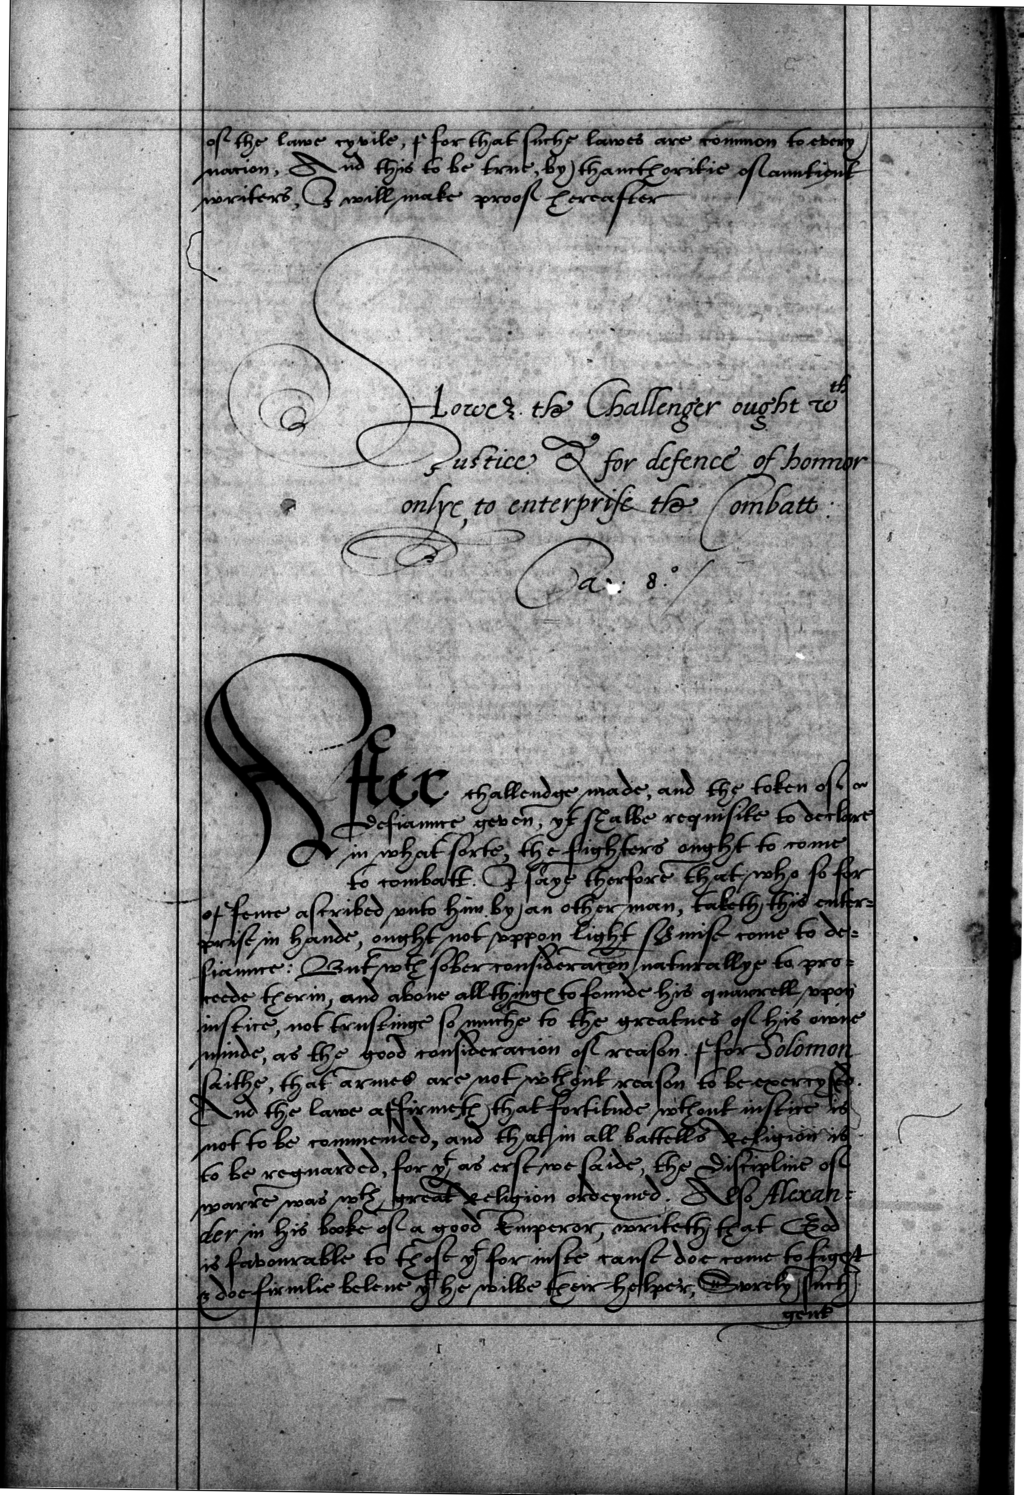 of the lawe cyvile, & for that suche lawes are common to every
nacion, And this to be true, by thaucthoritie of aunticnt
writers, I will make proof hereafter
Howe the Challenger ought wth
Justice & for defence of honnor
onlye, to enterprise the Combatt:
Ca: 8.º/
After challendge made, and the token of
defiannce geven, yt shalbe requisite to declare
in what sorte, the fighters ought to come
to combatt. I saye therfore that who so for
offence ascribed unto him by an other man, taketh this enter-
prise in hande, ought not uppon light surmise come to de-
fiannce: But wth sober consideracon naturallye to pro-
ceede therin, and above all things to founde his quarrell upon
iustice, not trustinge so muche to the greatnes of his owne
minde, as the good consideracion of reason. ffor Solomon
saithe, that armes are not wthout reason to be exercysed.
And the lawe affirmeth that fortitude wthout iustice is
not to be commended, and that in all battells Religion is
to be reguarded, for yt as erst we saide, the Discipline of
warre was wth great Religion ordeyned. Also Alexan-
der in his booke of a good Emperor, writeth that God
is favourable to those yt for iuste cause doe come to fight
& doe firmlie beleve yt he wilbe their helper, Surely such
gent